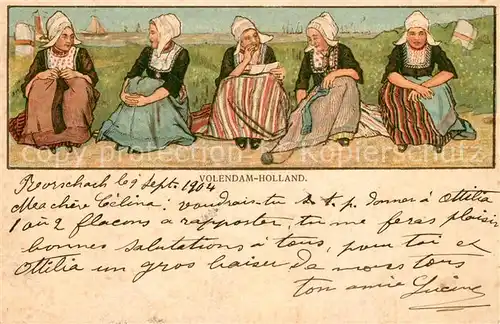 VOLENDAM-HOLLAND.
Rorschach le 9 Sept. 1904
Ma chère Célina: voudrais-tu s. t. p. donner à Ottilia
1 où 2 flacons a rapporter, tu me feras plaisir
bonnes salutations à tous, pour toi et
Ottilia un gros baiser de nous tous
ton amie Lucine